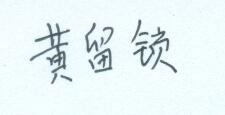 黄留锁